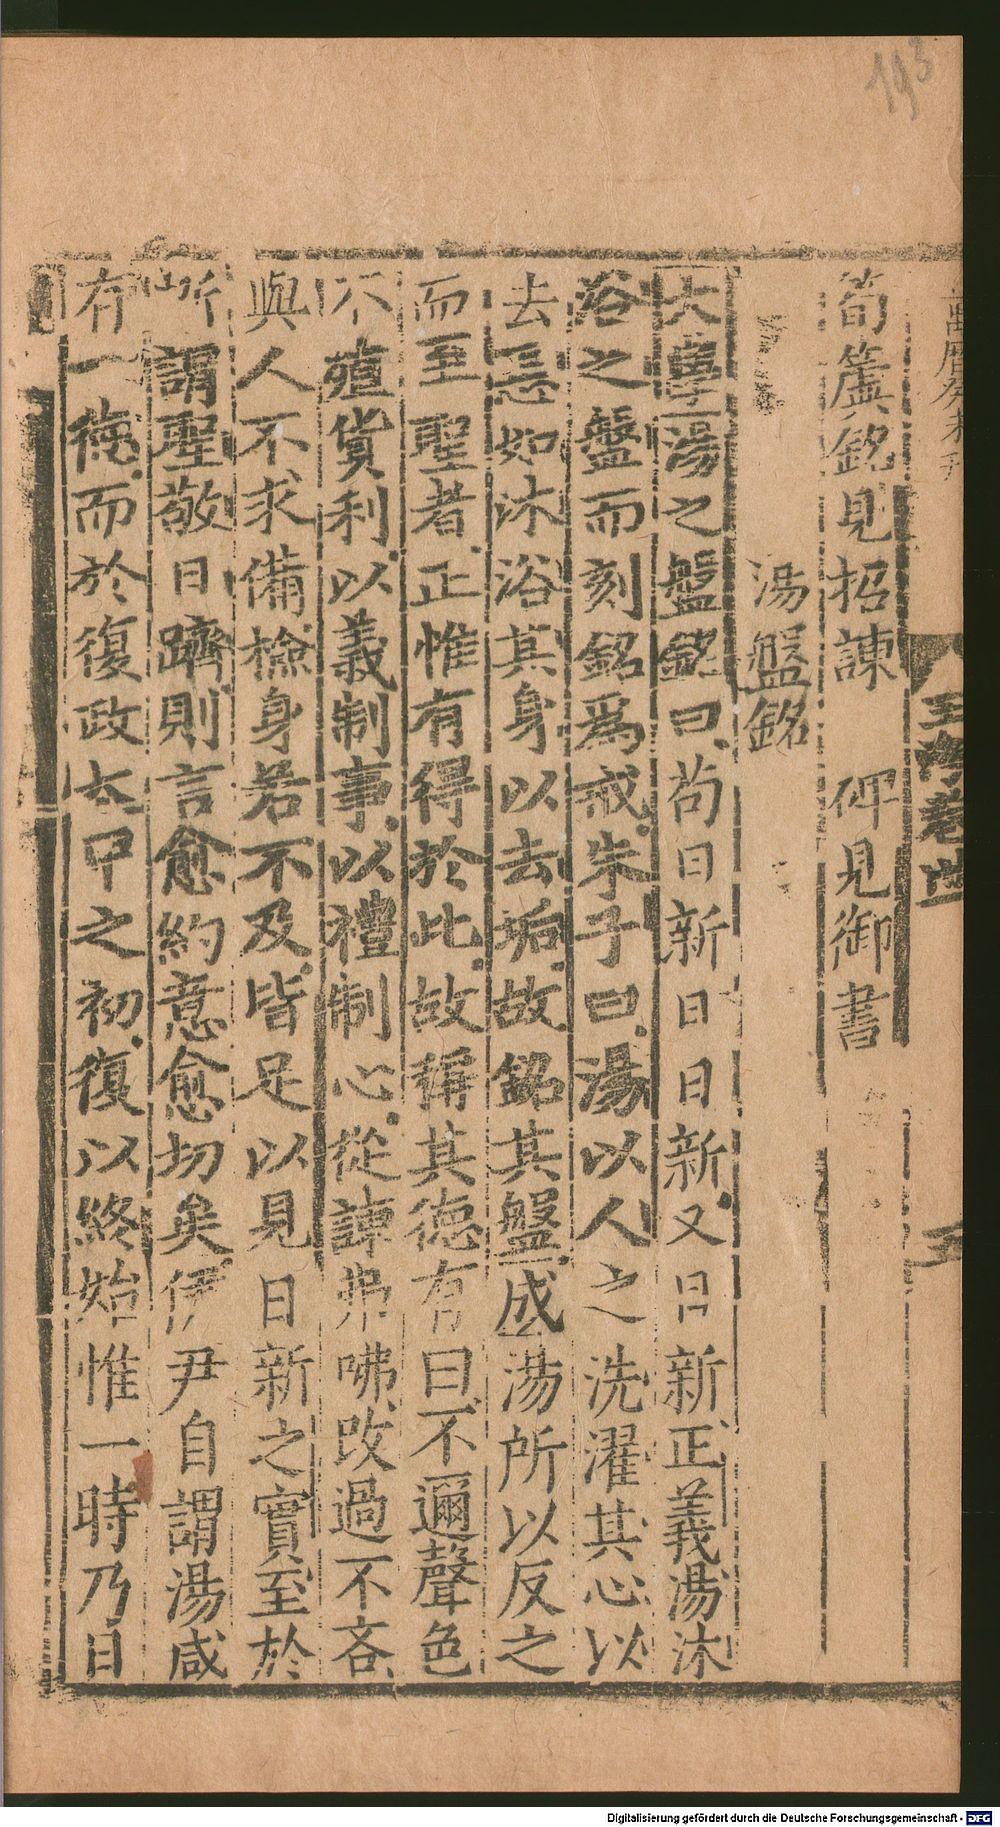 193
萬曆癸未刊
玉海卷
五
筍簴銘見招諫　碑見御書
湯盤銘
大學湯之盤銘曰苟日新日日新又日新正義湯沐
浴之盤而刻銘爲戒朱子曰湯以人之洗濯其心以
去惡如沐浴其身以去垢故銘其盤成湯所以反之
而至聖者正惟有得於此故稱其德有曰不邇聲色
不殖貨利以義制事以禮制心從諫弗咈改過不吝
與人不求備檢身若不及皆足以見日新之實至於
所謂聖敬日躋則言愈約意愈切矣伊尹自謂湯咸
有一德而於復政太甲之初復以終始惟一時乃日
Digitalisierung gefördert durch die Deutsche Forschungsgemeinschaft - DFG